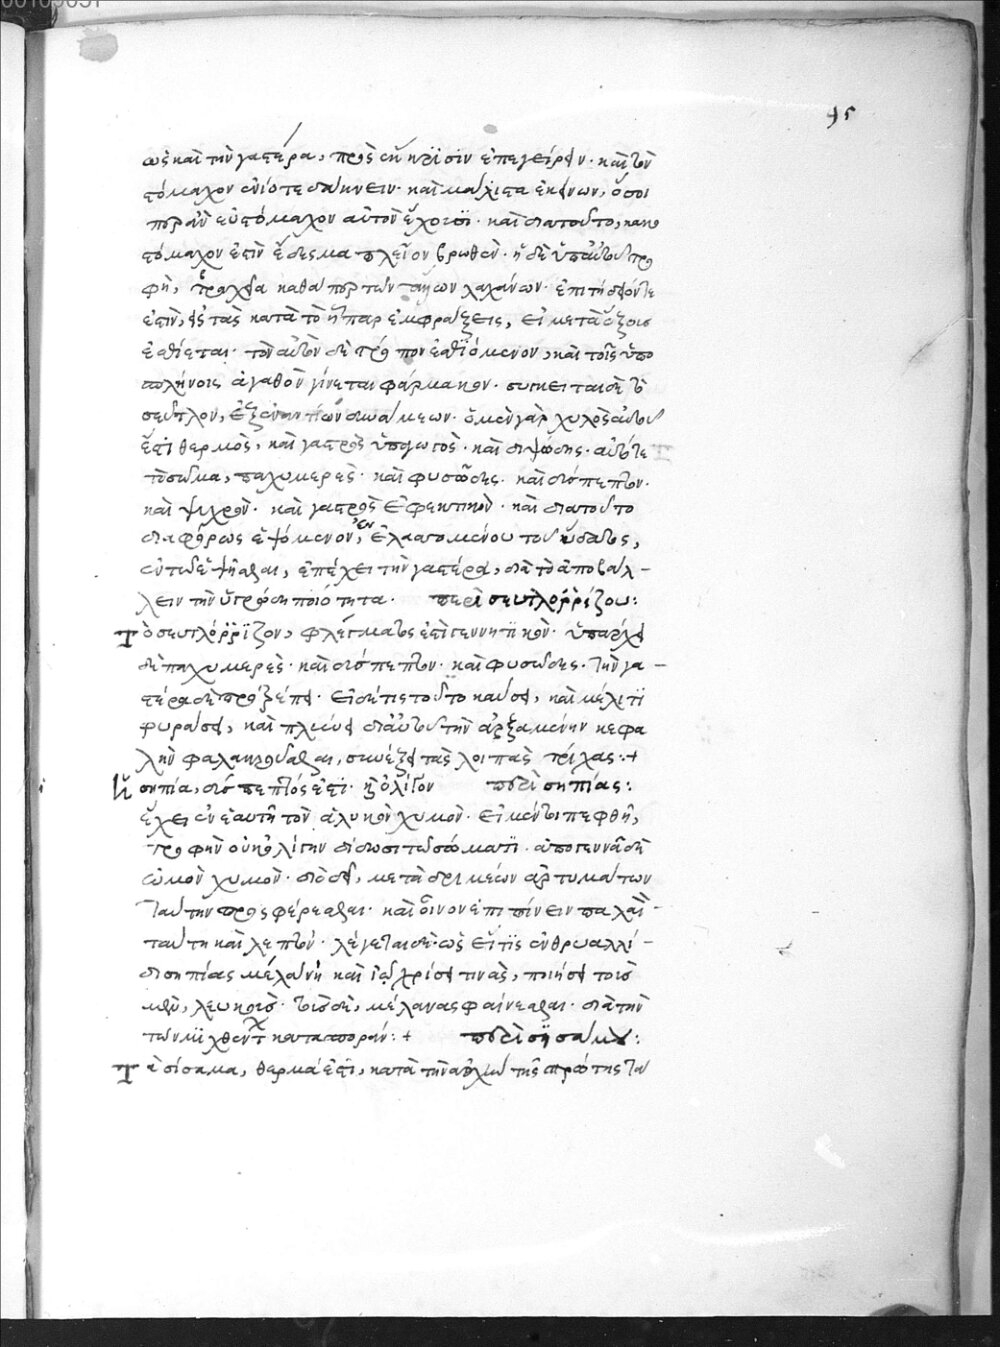 ϟε
ὡς καὶ τὴν γαστέρα, πρὸς ἔκκρισιν ἐπεγείρειν· καὶ τὸν
στόμαχον ἐνίοτε δάκνειν· καὶ μάλιστα ἐκείνων, ὅσοι
περ ἂν εὐστόμαχον αὐτὸν ἔχοισι· καὶ διατοῦτο, κακο
στόμαχον ἐστὶν ἔδεσμα πλεῖον βρωθὲν· ἡ δὲ ὑπ' αὐτοῦ τρο
φὴ, βραχεῖα καθάπερ τῶν ἄλλων λαχάνων· ἐπιτήδειόν τε
ἐστὶν, εἰς τὰς κατὰ τὸ ἧπαρ ἐμφράξεις, εἰ μετὰ ὄξους
ἐσθίεται· τὸν αὐτὸν δὲ τρόπον ἐσθιόμενον, καὶ τοῖς ὑπο
σπλήνοις ἀγαθὸν γίνεται φάρμακον· συγκειται δὲ τὸ
σεῦτλον, ἐξ ἐναντίων δυνάμεων· ὁ μὲν γὰρ χυλὸς αὐτοῦ
ἐστι θερμὸς, καὶ γαστρὸς ὑπαγωγὸς· καὶ διψώδης· αὐτό τε
τὸ σῶμα, παχυμερὲς· καὶ φυσῶδες· καὶ δύσπεπτον·
καὶ ψυχρὸν· καὶ γαστρὸς ἐφεκτικὸν· καὶ διατοῦτο
διαφόρως ἑψόμενον, ἐν ἐλαττομένου τοῦ ὕδατος,
ἐν τῷ ἕψησθαι, ἐπέχει τὴν γαστέρα, διὰ τὸ ἀποβάλ-
λειν τὴν ὑγρώδη ποιότητα· περὶ σευτλορρίζου:
Τὸ σευτλόρριζον, φλέγματος ἐστὶ γεννητικὸν· ὑπάρχει
δὲ παχυμερὲς· καὶ δύσπεπτον· καὶ φυσῶδες· τὴν γα-
στέρα δὲ προτρέπει· εἰ δέ τις τοῦτο καύσει, καὶ μέλιτι
φυράσει, καὶ πλύνει δι' αὐτοῦ τὴν ἀρξαμένην κεφα
λὴν φαλακροῦσθαι, συνέξει τὰς λοιπὰς τρίχας:+
Ἡ σηπία, δύσπεπτός ἐστι· κ' ὀλίγον περὶ σηπίας:
ἔχει ἐν ἑαυτῇ τὸν ἁλυκὸν χυμὸν· εἰ μέν τοι πεφθῇ,
τροφὴν οὐκ ὀλίγην δίδωσι τῷ σώματι· ἀπογεννᾷ δὲ
ὠμὸν χυμὸν· διὸ δεῖ, μετὰ δριμέων ἀρτυμάτων
ταύτην προσφέρεσθαι· καὶ οἶνον ἐπιπίνειν παλαι-
ταύτη καὶ λεπτὸν· λέγεται δὲ ὡς εἴ τις ἐν θρυαλλί-
δι σηπίας μέλανι καὶ ἰῷ χρίσει τινὰς, ποιήσει τοὺς
μὲν, λευκοὺς· τοὺς δὲ, μέλανας φαίνεσθαι· διὰ τὴν
τῶν μιχθέντων κατασποράν:+ περὶ σησάμου:
Τὰ σίσαμα, θερμά ἐστι, κατὰ τὴν ἀρχὴν τῆς πρώτης τα